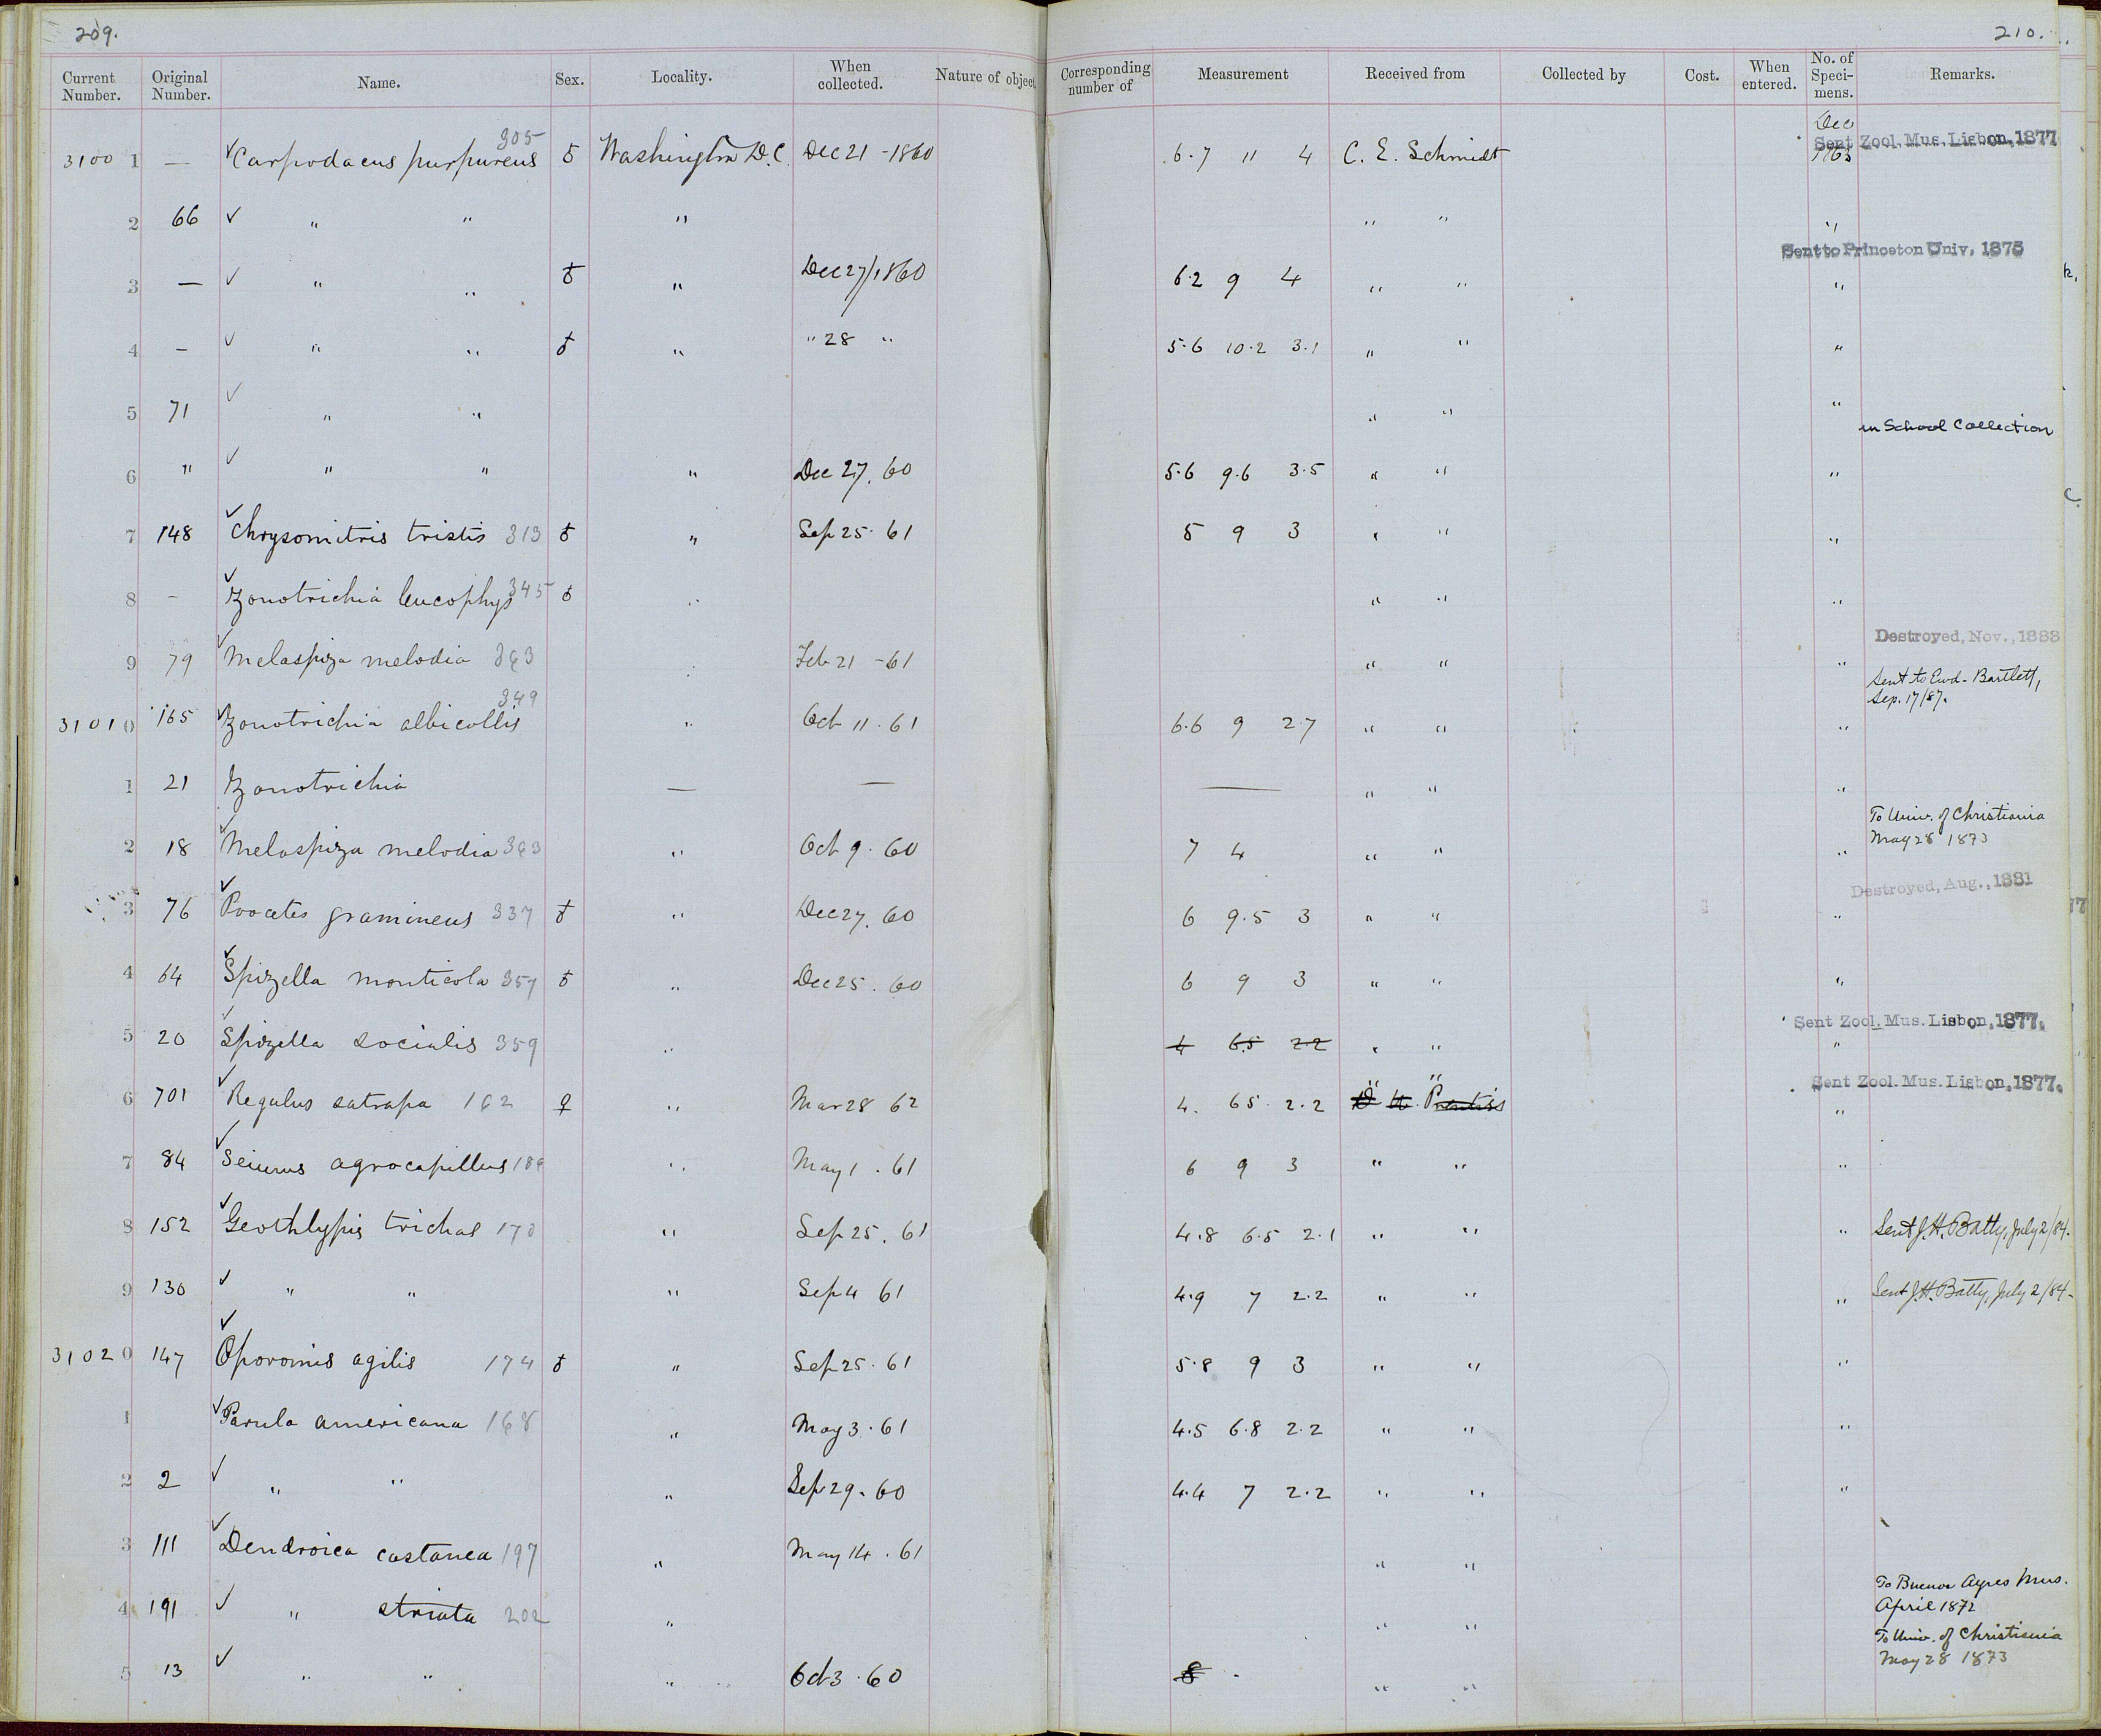 209.
210.
Current Number. Original Number. Name. Sex. Locality. When collected. Nature of object Corresponding number of Measurement Received from Collected by Cost. When entered. No. of Specimens. Remarks.
Dec
31001 — ✓Carpodacus purpureus 305 ♂ Washington D.C. Dec 21 - 1860 6.7 11 4 C. E. Schmidt 1863 Sent Zool. Mus. Lisbon, 1877
2 66 ✓ " " " " " "
Sent to Princeton Univ. 1878
3 — ✓ " " ♂ " Dec 27/1860 6.2 9 4 " " "
4 – ✓ " " ♂ " " 28 " 5.6 10.2 3.1 " " "
5 71 ✓ " " " " "
in School Collection
6 " ✓ " " " Dec 27. 60 5.6 9.6 3.5 " " "
7 148 ✓Chrysomitris tristis 313 ♂ " Sep 25. 61 5 9 3 " " "
8 – ✓Zonotrichia leucophys 345 ♂ " " " "
Destroyed, Nov., 1888
9 79 ✓Melospiza melodia 363 " Feb 21 - 61 " " "
Sent to Ewd. Bartlett,
Sep. 17/87.
31010 165 ✓Zonotrichia albicollis 349 " Oct 11. 61 6.6 9 2.7 " " "
1 21 Zonotrichia — — — " " "
To Univ. of Christiania
May 28 1873
2 18 ✓Melospiza melodia 363 " Oct 9. 60 7 4 " " "
Destroyed, Aug., 1881
3 76 ✓Poocetes gramineus 337 ♂ " Dec 27. 60 6 9.5 3 " " "
4 64 ✓Spizella monticola 357 ♂ " Dec 25. 60 6 9 3 " " "
Sent Zool. Mus. Lisbon, 1877.
5 20 ✓Spizella socialis 359 " 4 6.5 2.2 " " "
Sent Zool. Mus. Lisbon, 1877.
6 701 ✓Regulus satrapa 162 ♀ " Mar 28 62 4. 6.5 2.2 " " "
7 84 ✓Seiurus agrocapillus 186 " May 1. 61 6 9 3 " " "
8 152 ✓Geothlypis trichas 170 " Sep 25. 61 4.8 6.5 2.1 " " " Sent J. H. Batty, July 2/84.
9 130 ✓ " " " Sep 4 61 4.9 7 2.2 " " " Sent J. H. Batty, July 2/84.
31020 147 ✓Oporornis agilis 174 ♂ " Sep 25. 61 5.8 9 3 " " "
1 ✓Parula americana 168 " May 3. 61 4.5 6.8 2.2 " " "
2 2 ✓ " " " Sep 29. 60 4.4 7 2.2 " " "
3 111 ✓Dendroica castanea 197 " May 14. 61 " "
To Buenos Ayres Mus.
April 1872
4 191 ✓ " striata 202 " " "
To Univ. of Christiania
May 28 1873
5 13 ✓ " " " Oct 3. 60 8 " "